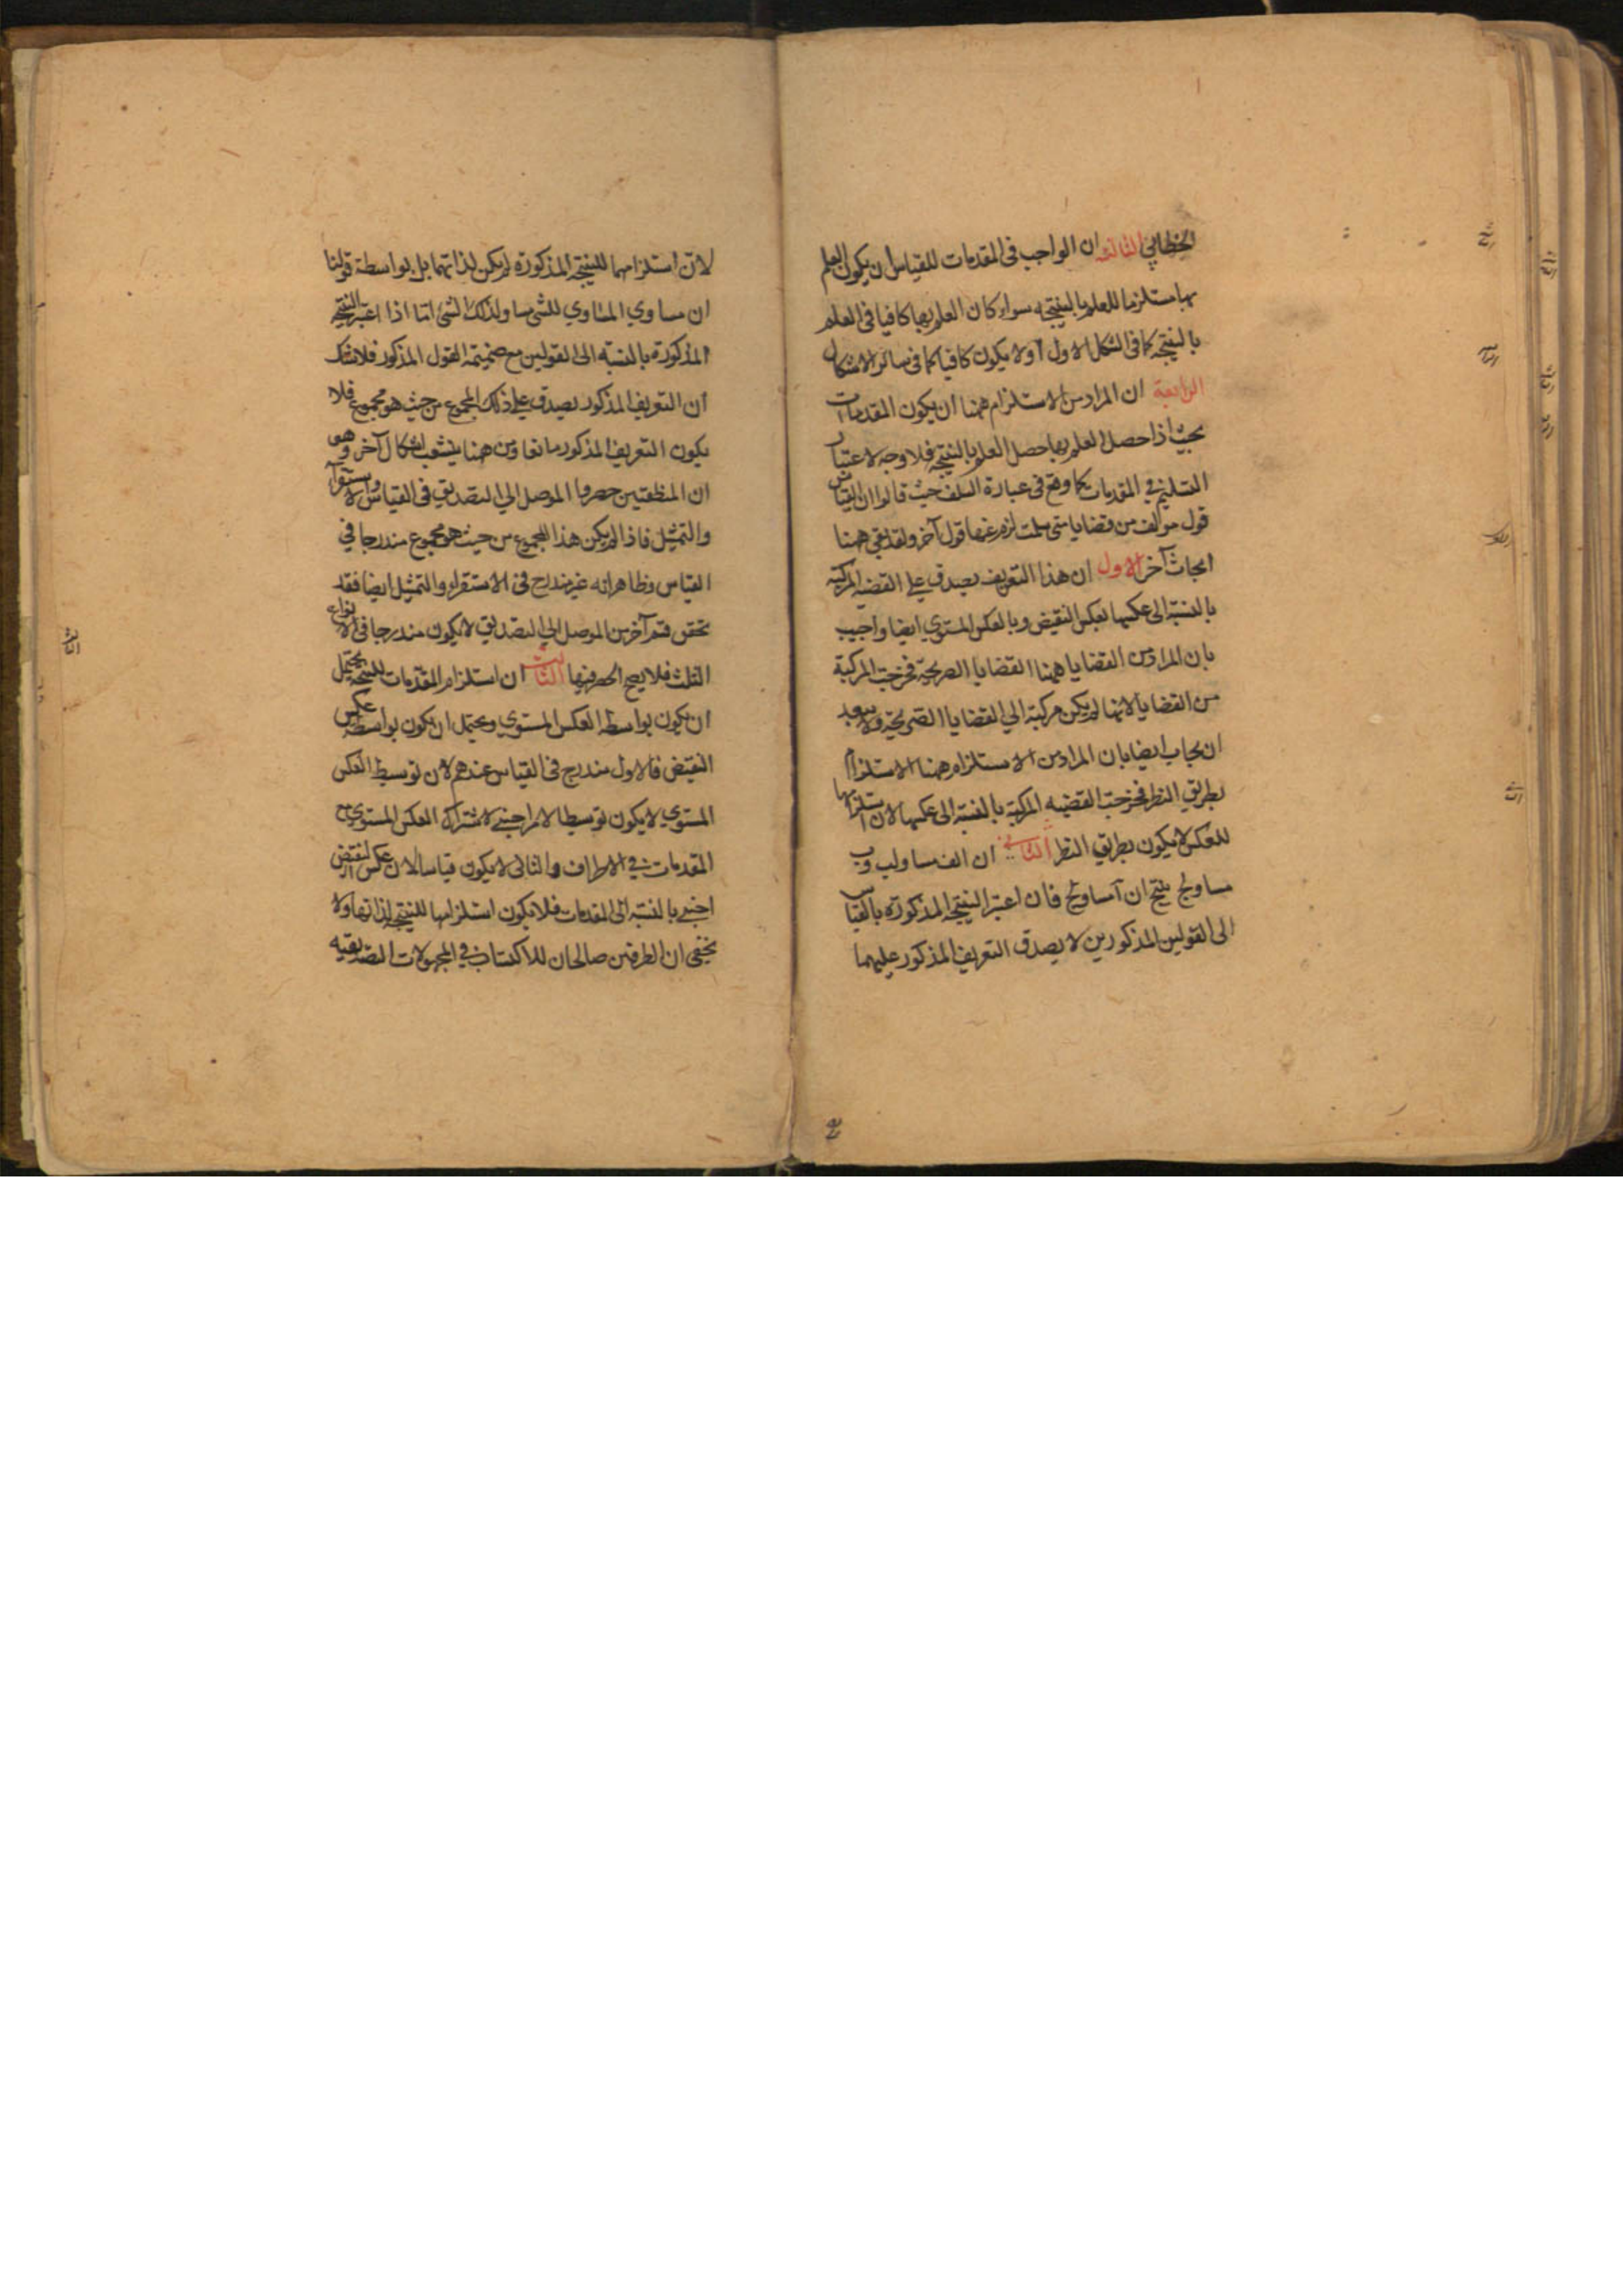 الخطابي الثالثة ان الواجب في المقدمات للقياس ان يكون العلم
بها مستلزما للعلم بالنتيجة سواء كان العلم بها كافيا في العلم
بالنتيجة كما في الشكل الاول او لا يكون كافيا كما في سائر الاشكال
الرابعة ان المراد من الاستلزام ههنا ان يكون المقدمات
بحيث اذا حصل العلم بها حصل العلم بالنتيجة فلا وجه لاعتبار
التسليم في المقدمات كما وقع في عبارة السلف حيث قالوا ان القياس
قول مولف من قضايا متى سلمت لزم عنها قول آخر ولقد بقي ههنا
ابحاث آخر الاول ان هذا التعريف يصدق على القضية المركبة
بالنسبة الى عكسها بعكس النقيض وبالعكس المستوي ايضا واجيب
بان المراد من القضايا ههنا القضايا الصريحة فخرجت المركبة
من القضايا لانها لم يكن مركبة الى القضايا الصريحة ولا يبعد
ان يجاب ايضا بان المراد من الاستلزام ههنا الاستلزام
بطريق النظر فخرجت القضية المركبة بالنسبة الى عكسها لان استلزامها
للعكس لا يكون بطريق النظر الثاني ان الف مساو لب وب
مساو لج ينتج ان آ مساو لج فان اعتبر النتيجة المذكورة بالقياس
الى القولين المذكورين لا يصدق التعريف المذكور عليهما
لان استلزامهما للنتيجة المذكورة لم يكن لذاتهما بل بواسطة قولنا
ان مساوي المساوي للشئ مساو لذلك الشئ اما اذا اعتبر النتيجة
المذكورة بالنسبة الى القولين مع ضميمة القول المذكور فلا شك
ان التعريف المذكور يصدق على ذلك المجموع من حيث هو مجموع فلا
يكون التعريف المذكور مانعا ومن هنا ينشعب اشكال آخر وهو
ان المنطقيين حصروا الموصل الى التصديق في القياس والاستقرآ
والتمثيل فاذا لم يكن هذا المجموع من حيث هو مجموع مندرجا في
القياس وظاهر انه غير مندرج في الاستقراء والتمثيل ايضا فقد
تحقق قسم آخر من الموصل الى التصديق لا يكون مندرجا في الانواع
الثلث فلا يصح الحصر فيها الثالث ان استلزام المقدمات للنتيجة يحتمل
ان يكون بواسطة العكس المستوي ويحتمل ان يكون بواسطة عكس
النقيض فالاول مندرج في القياس عندهم لان توسيط العكس
المستوي لا يكون توسيطا لامر اجنبي لاشتراك العكس المستوي مع
المقدمات في الاطراف والثاني لا يكون قياسا لان عكس النقيض
اجنبي بالنسبة الى المقدمات فلا يكون استلزامها للنتيجة لذاتها ولا
يخفى ان الطرفين صالحان للاكتساب في المجهولات التصديقية